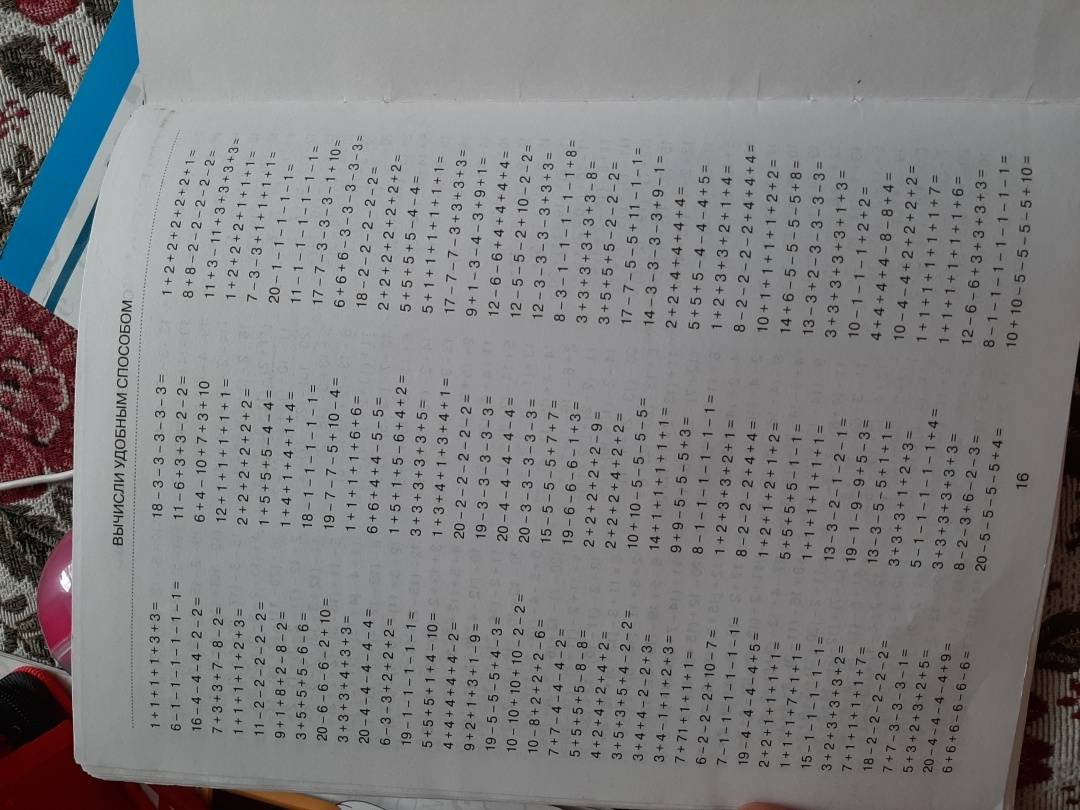 ВЫЧИСЛИ УДОБНЫМ СПОСОБОМ
1+1+1+1+3+3=
6−1−1−1−1−1−1=
16−4−4−4−2−2=
7+3+3+7−8−2=
1+1+1+1+2+3=
11−2−2−2−2−2=
9+1+8+2−8−2=
3+5+5+5−6−6=
20−6−6−6−2+10=
3+3+3+4+3+3=
20−4−4−4−4−4=
6−3−3+2+2+2=
19−1−1−1−1−1=
5+5+5+1+4−10=
4+4+4+4+4−2=
9+2+1+3+1−9=
19−5−5−5+4−3=
10−10+10+10−2−2=
10−8+2+2+2−6=
7+7−4−4−4−2=
5+5+5+5−8−8=
4+2+4+2+4+2=
3+5+3+5+4−2−2=
3+4+4−2−2+3=
3+4−1+1+2+3=
7+71+1+1+1=
6−2−2−2+10−7=
7−1−1−1−1−1−1=
19−4−4−4−4+5=
2+2+1+1+1+1+1=
1+1+1+7+1+1+1=
15−1−1−1−1−1=
3+2+3+3+3+2=
7+1+1+1+1+7=
18−2−2−2−2−2=
7+7−3−3−3−1=
5+3+2+3+2+5=
20−4−4−4−4+9=
6+6+6−6−6−6=
18−3−3−3−3−3=
11−6+3+3−2−2=
6+4−10+7+3+10
12+1+1+1+1+1=
2+2+2+2+2+2=
1+5+5+5−4−4=
1+4+1+4+1+4=
18−1−1−1−1−1=
19−7−7−5+10−4=
1+1+1+1+6+6=
6+6+4+4−5−5=
1+5+1+5−6+4+2=
3+3+3+3+3+5=
1+3+4+1+3+4+1=
20−2−2−2−2−2−2=
19−3−3−3−3−3=
20−4−4−4−4−4=
20−3−3−3−3−3=
15−5−5−5+7+7=
19−6−6−6−1+3=
2+2+2+2+2−9=
2+2+2+4+2+2=
10+10−5−5−5−5=
14+1+1+1+1+1=
9+9−5−5−5+3=
8−1−1−1−1−1−1=
1+2+3+3+2+1=
8−2−2−2+4+4=
1+2+1+2+1+2=
5+5+5+5−1−1=
1+1+1+1+1+1+1=
13−3−2−1−2−1=
19−1−9−9+5−3=
13−3−5−5+1+1=
3+3+3+1+2+3=
5−1−1−1−1−1+4=
3+3+3+3+3+3=
8−2−3+6−2−3=
20−5−5−5−5+4=
1+2+2+2+2+2+1=
8+8−2−2−2−2−2=
11+3−11+3+3+3+3=
1+2+2+2+1+1+1=
7−3−3+1+1+1+1=
20−1−1−1−1−1=
11−1−1−1−1−1−1=
17−7−3−3−3−1+10=
6+6+6−3−3−3−3−3=
18−2−2−2−2−2=
2+2+2+2+2+2+2=
5+5+5+5−4−4=
5+1+1+1+1+1+1=
17−7−7−3+3+3+3=
9+1−3−4−3+9+1=
12−6−6+4+4+4+4=
12−5−5−2+10−2−2=
12−3−3−3−3+3+3=
8−3−1−1−1−1−1+8=
3+3+3+3+3+3−8=
3+5+5+5−2−2−2=
17−7−5−5+11−1−1=
14−3−3−3−3+9−1=
2+2+4+4+4+4=
5+5+5−4−4−4+5=
1+2+3+3+2+1+4=
8−2−2−2−2+4+4+4=
10+1+1+1+1+2+2=
14+6−5−5−5−5+8=
13−3+2−3−3−3−3=
3+3+3+3+3+1+3=
10−1−1−1−1+2+2=
4+4+4+4−8−8+4=
10−4−4+2+2+2+2=
1+1+1+1+1+1+7=
1+1+1+1+1+1+6=
12−6−6+3+3+3+3=
8−1−1−1−1−1−1−1=
10+10−5−5−5−5+10=
16